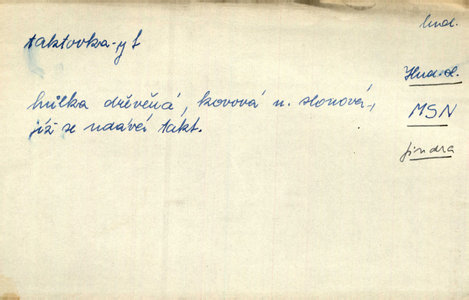 hud.
taktovka -y f
Hud. sl.
hůlka dřevěná, kovová n. slonová,
MSN
jíž se udává takt.
jindra